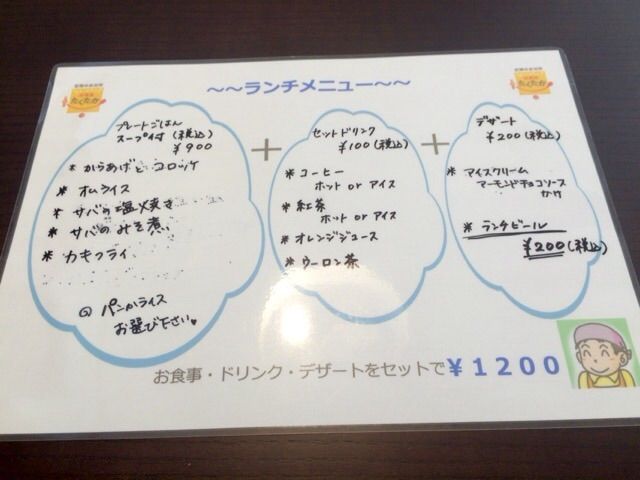 ～～ランチメニュー～～
たくたか
たくたか
プレートごはん
スープ付(税込)
¥900
* からあげとコロッケ
* オムライス
* サバの塩焼き
* サバのみそ煮
* カキフライ
パンかライス
お選び下さい♥
+
セットドリンク
¥100(税込)
* コーヒー
ホット or アイス
* 紅茶
ホット or アイス
* オレンジジュース
* ウーロン茶
+
デザート
¥200(税込)
* アイスクリーム
アーモンドチョコソース
かけ
* ランチビール
¥200(税込)
お食事・ドリンク・デザートをセットで¥1200